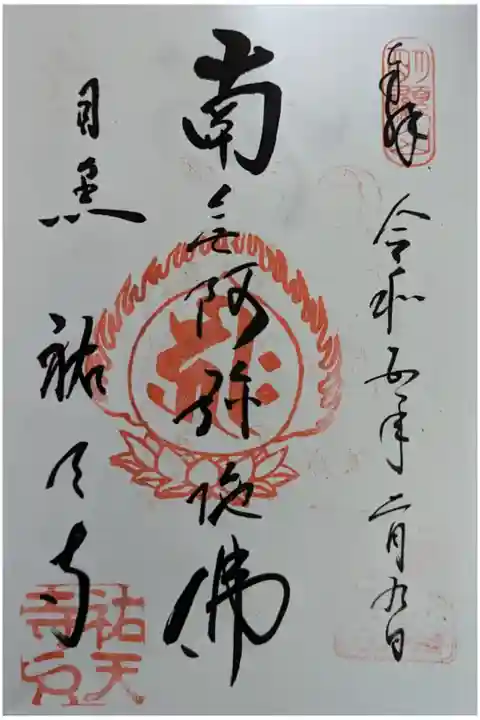 奉拝
令和五年二月九日
南無阿弥陀佛
目黒 祐天寺
祐天寺印